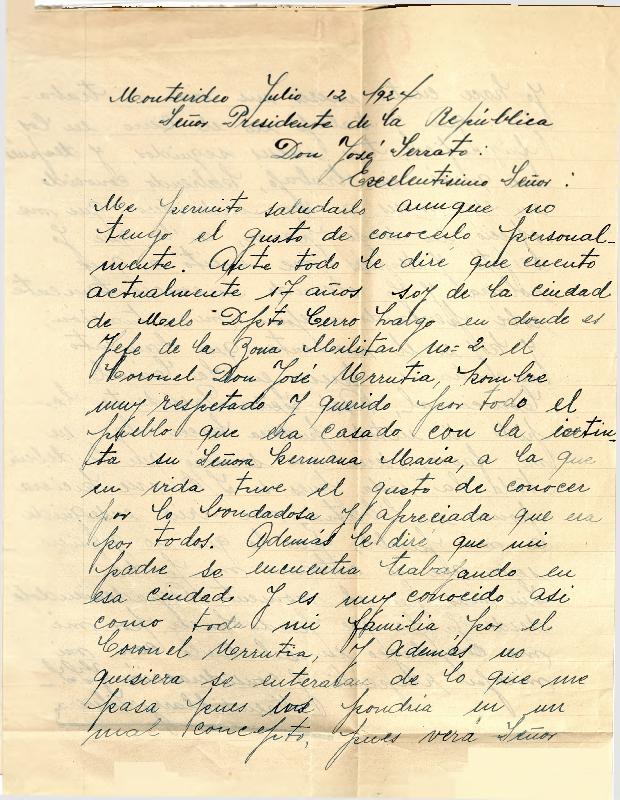 Montevideo Julio 12 1924
Señor Presidente de la República
Don José Serrato:
Excelentisimo Señor:
Me permito saludarlo aunque no
tengo el gusto de conocerlo personal-
mente. Ante todo le diré que cuento
actualmente 17 años soy de la ciudad
de Melo Dpto Cerro Largo en donde es
Jefe de la Zona Militar no= 2 el
Coronel Don José Urrutia, hombre
muy respetado y querido por todo el
pueblo que era casado con la extin-
ta su Señora hermana Maria, a la que
en vida tuve el gusto de conocer
por lo bondadosa y apreciada que era
por todos. Además le dire que mi
padre se encuentra trabajando en
esa ciudad y es muy conocido asi
como toda mi familia por el
Coronel Urrutia, y además no
quisiera se enteraran de lo que me
pasa pues los pondria en un
mal concepto, pues verá Señor